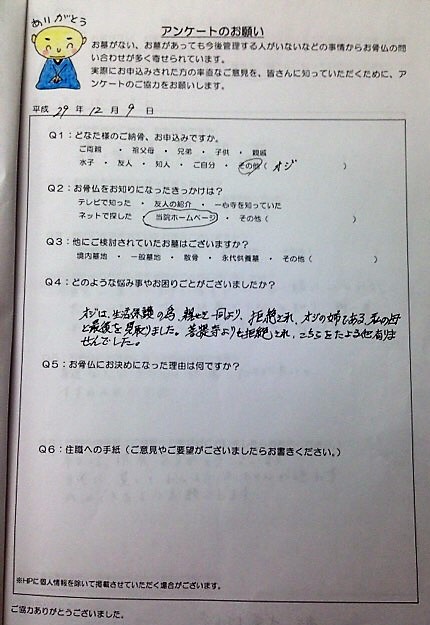 ありがとう
アンケートのお願い
お墓がない、お墓があっても今後管理する人がいないなどの事情からお骨仏の問
い合わせが多く寄せられています。
実際にお申込みされた方の率直なご意見を、皆さんに知っていただくために、ア
ンケートのご協力をお願いします。
平成 29 年 12 月 9 日
Q1：どなた様のご納骨、お申込みですか。
ご両親 ・ 祖父母 ・ 兄弟 ・ 子供 ・ 親戚
水子 ・ 友人 ・ 知人 ・ ご自分 ・ その他（ オジ ）
Q2：お骨仏をお知りになったきっかけは？
テレビで知った ・ 友人の紹介 ・ 一心寺を知っていた
ネットで探した ・ 当院ホームページ ・ その他（ ）
Q3：他にご検討されていたお墓はございますか？
境内墓地 ・ 一般墓地 ・ 散骨 ・ 永代供養墓 ・ その他（ ）
Q4：どのような悩み事やお困りごとがございましたか？
オジは、生活保護の為、親せき一同より、拒絶され、オジの姉である、私の母
と最後を見取りました。菩提寺よりも拒絶され、こちらをたよる他有りま
せんでした。
Q5：お骨仏にお決めになった理由は何ですか？
Q6：住職への手紙（ご意見やご要望がございましたらお書きください。）
※HPに個人情報を除いて掲載させていただく場合がございます。
ご協力ありがとうございました。